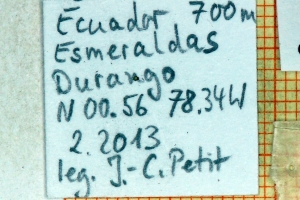 Ecuador 700m
Esmeraldas
Durango
N 00.56 78.34W
2.2013
leg. J.-C. Petit